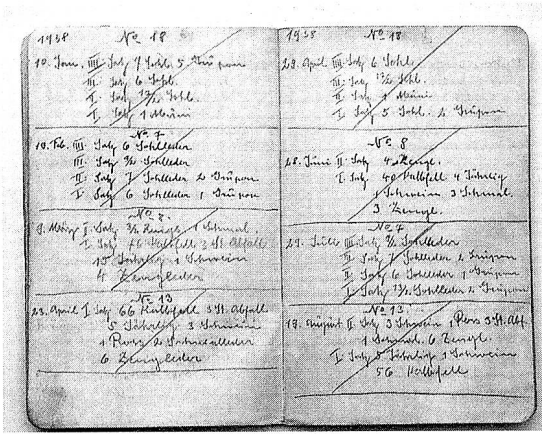 1938 No 18
10. Jan. III. Satz 7 Sohl. 5 Grupon
III. Satz 6 Sohl.
II. Satz 13/2 Sohl.
I. Satz 1
No 7
19. Feb. III. Satz 6 Sohlleder
III. Satz 3/2 Sohlleder
II. Satz 7 Sohlleder 2 Grupon
I. Satz 6 Sohlleder 1 Grupon
No 8.
9. März II. Satz 3/2 Zeugl. 1 Schmal.
I. Satz 46 Kalbfell 3 St. Abfall
15 Jährlig 1 Schwein
4 Zeugleder
No 13
23. April I. Satz 66 Kalbfell 3 St. Abfall
5 Jährlig 3 Schwein
1 Ross 2
6 Zeugleder
1938 No 18
23. April III. Satz 6 Sohl.
III. Satz 13/2 Sohl.
II. Satz 1
I. Satz 5 Sohl. 2 Grupon
No 8
28. Juni II. Satz 4 Zeugl.
I. Satz 40 Kalbfell 4 Jährlig
1 Schwein 3 Schmal.
3 Zeugl.
No 7
29. Juli III. Satz 3/2 Sohlleder
III. Satz 7 Sohlleder 2 Grupon
II. Satz 6 Sohlleder 1 Grupon
I. Satz 13/2 Sohlleder 2 Grupon
No 13.
19. August II. Satz 3 Schwein 1 Ross 3 St. Abf.
1 Schmal. 6 Zeugl.
I. Satz 5 Jährlig 1 Schwein
56 Kalbfell